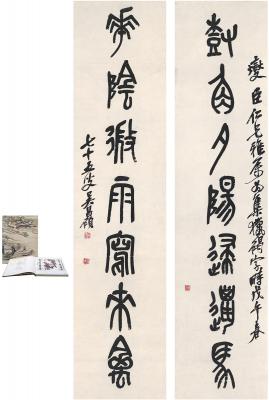 燮臣仁兄雅屬為集獵碣字時戊午春
夕陽歸馬
華陰微雨寫來禽
七十五叟吳昌碩